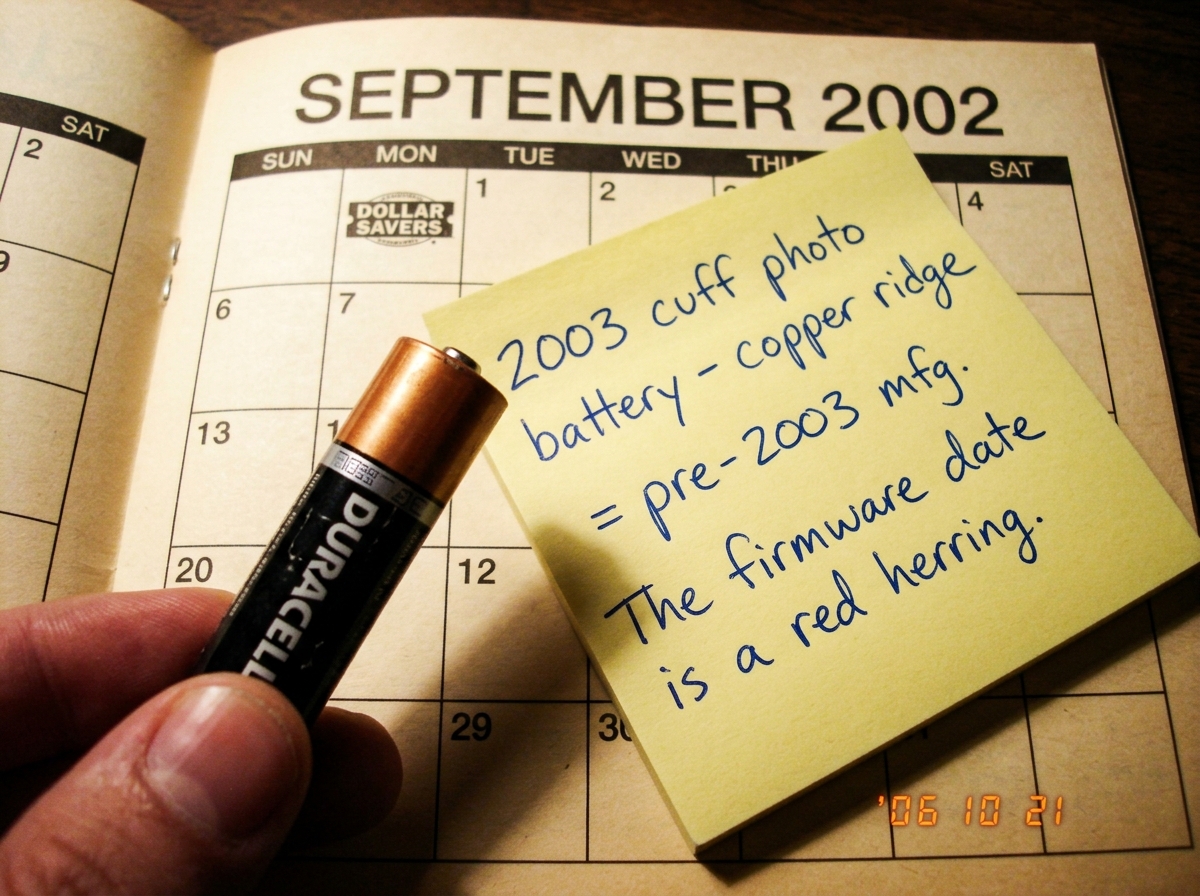 SAT
2
9
SEPTEMBER 2002
SUN MON TUE WED THU SAT
DOLLAR
SAVERS
1 2 4
6 7
13
20 12
29 30
2003 cuff photo
battery - copper ridge
= pre-2003 mfg.
The firmware date
is a red herring.
DURACELL
'06 10 21